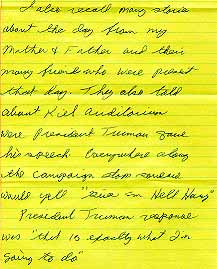 I also recall many stories
about the day from my
Mother & Father and their
many friends who were present
that day. They also told
about Kiel Auditorium
were President Truman gave
his speech. Everywhere along
the campaign stop someone
would yell "Give em Hell Harry"
President Truman response
was "that is exactly what I'm
going to do"